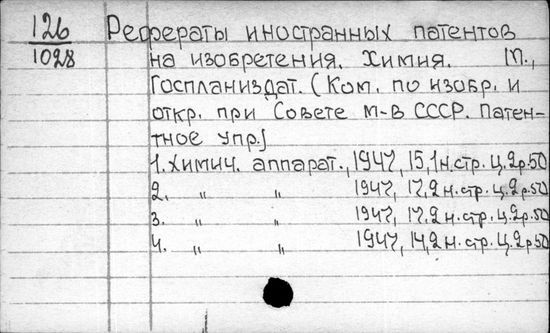 126 Рефераты иностранных патентов
1028 на изобретения. Химия. М.,
Госпланиздат. (Ком. по изобр. и
откр. при Совете М-в СССР. Патен-
тное упр.)
1. Химич. аппарат., 1947, 15, 1 н. стр. Ц. 2 р. 50
2. " " 1947, 17, 2 н. стр. Ц. 2 р. 50
3. " " 1947, 17, 2 н. стр. Ц. 2 р. 50
4. " " 1947, 14, 2 н. стр. Ц. 2 р. 50